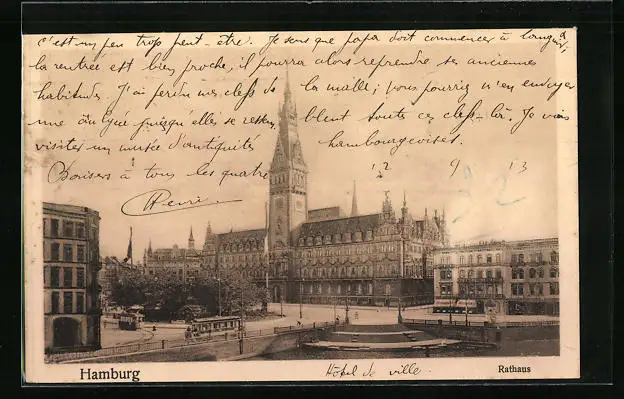 C'est un peu trop peut-être. Je sens que papa doit commencer à languir,
la rentrée est bien proche, il pourra alors reprendre ses anciennes
habitudes. J'ai perdu mes clefs de la malle ; vous pourriez m'en envoyer
une puisqu'elles se ressemblent toutes ces clefs-là. Je vais
visiter un musée d'antiquités hambourgeoises.
Baisers à tous les quatre
Henri
12 9 13
Hamburg
Hôtel de ville.
Rathaus